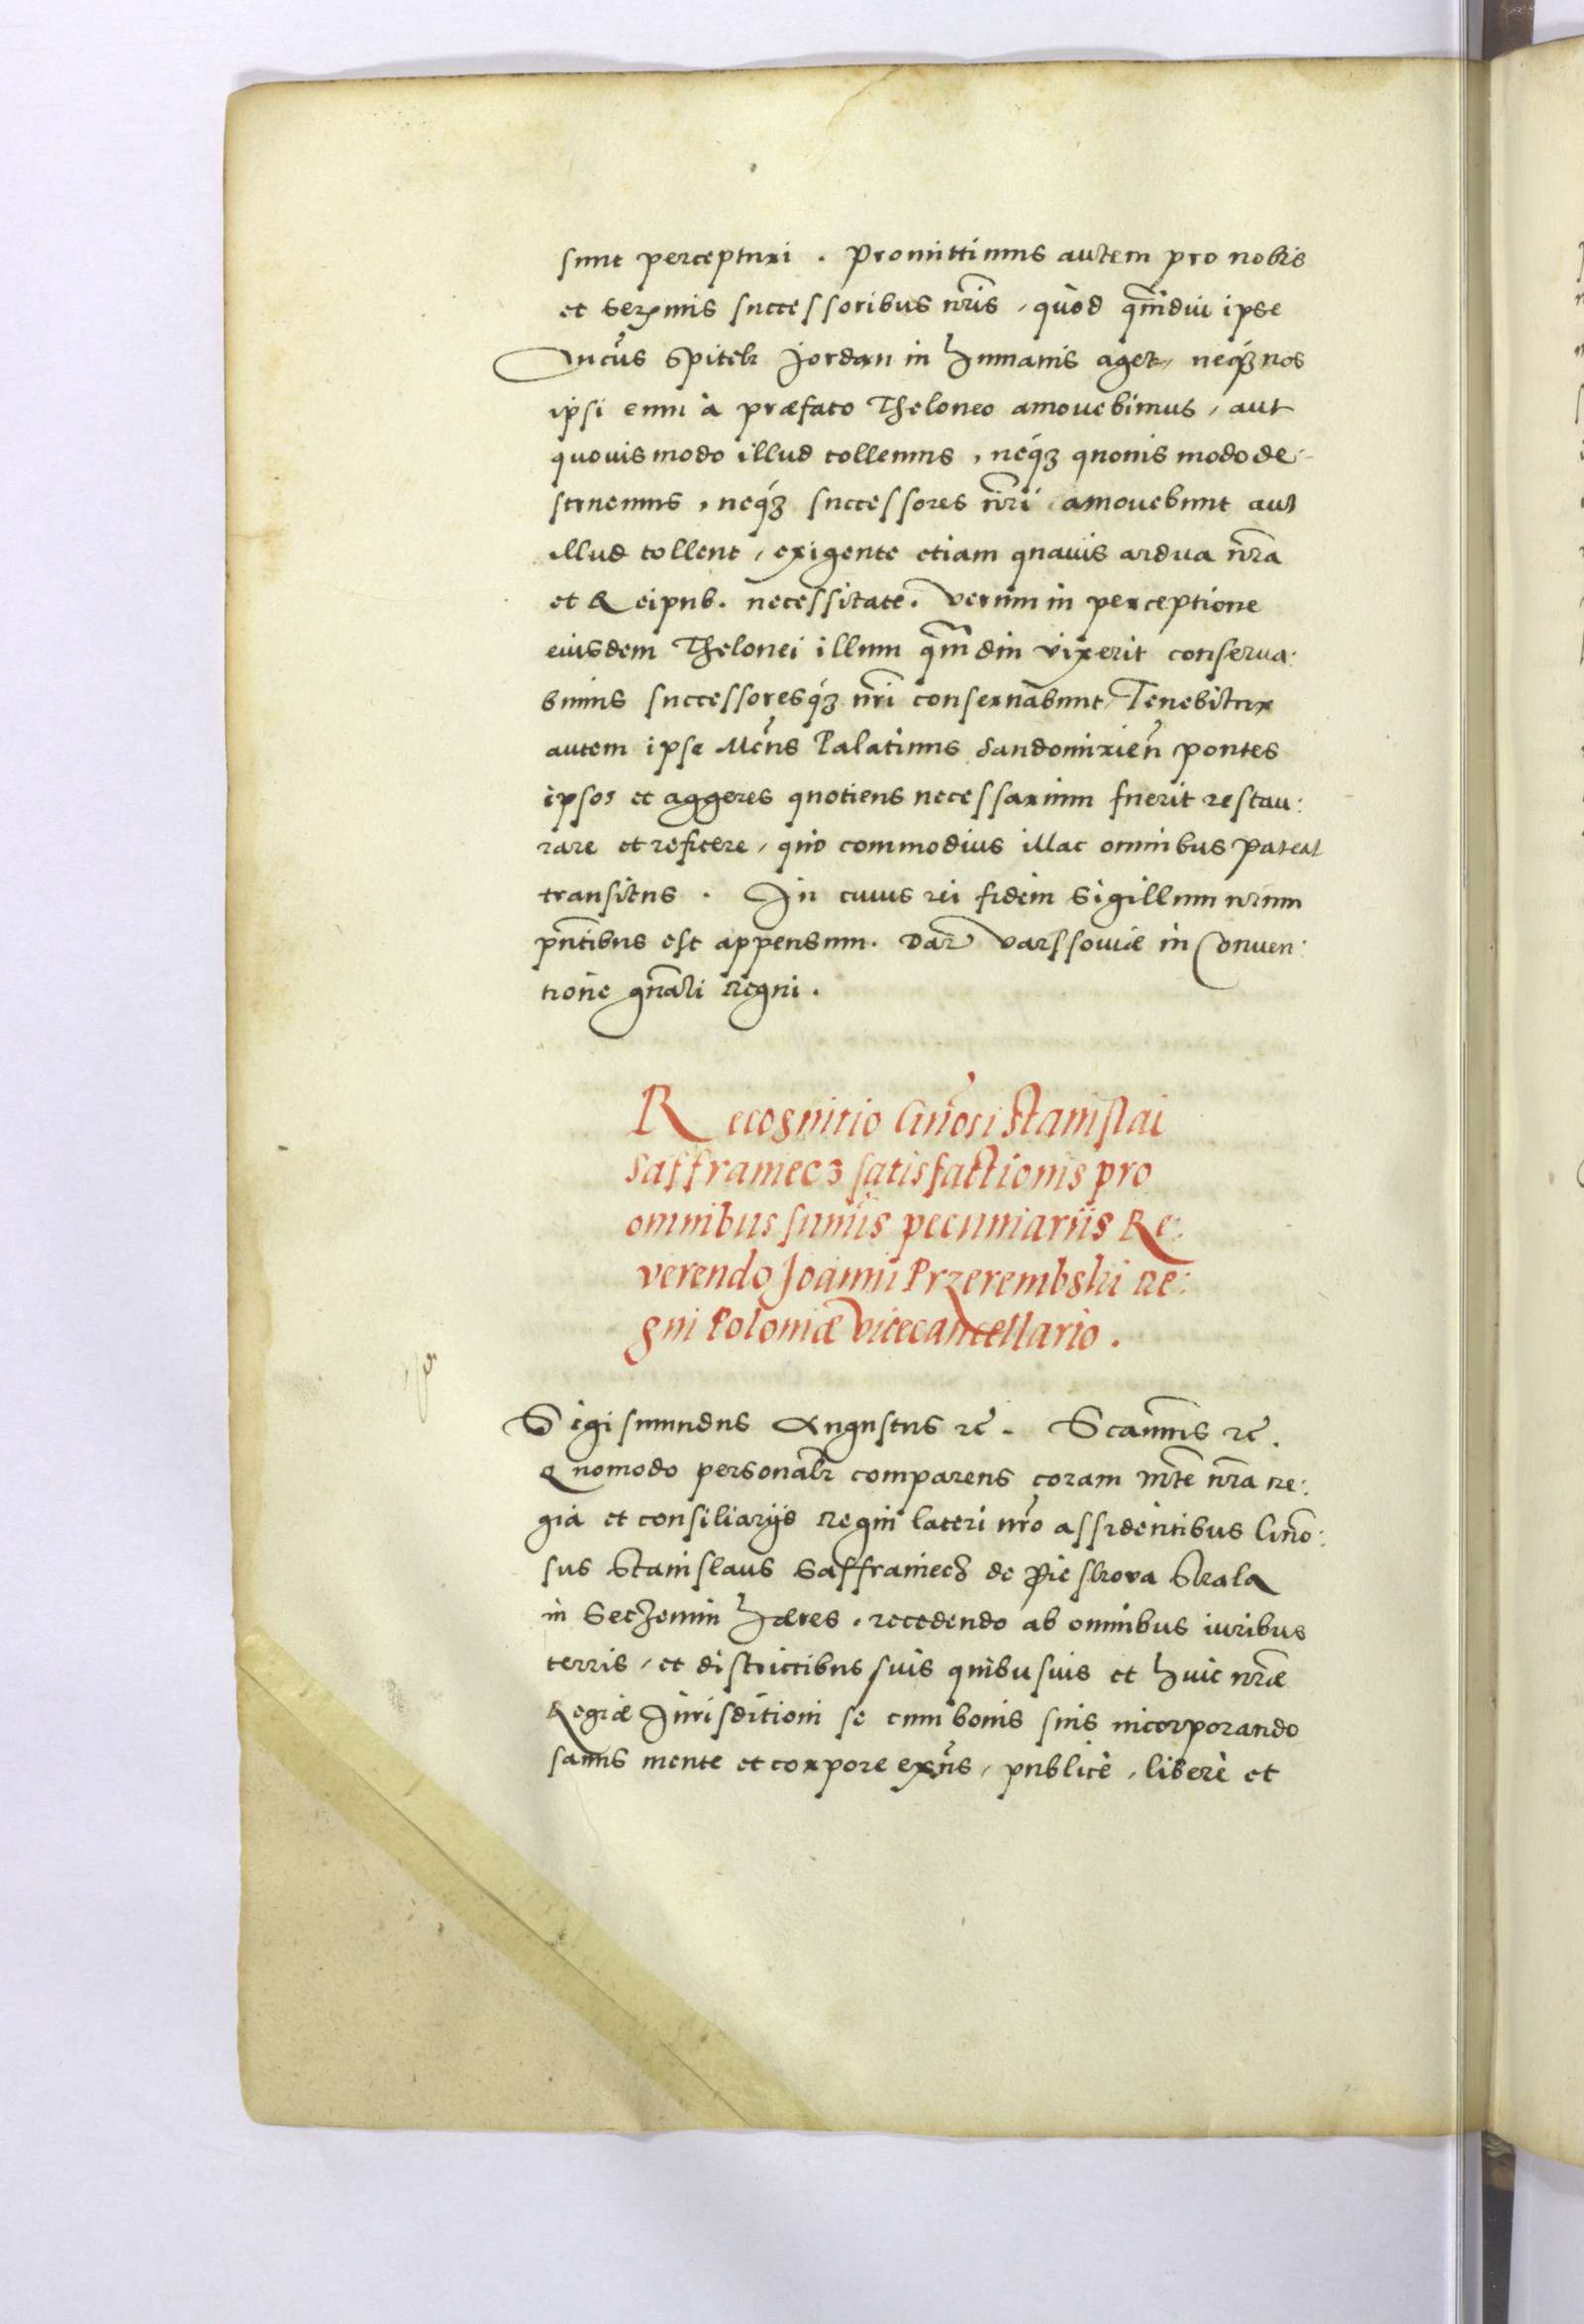 sunt percepturi . Promittimus autem pro nobis
et Serꝫmis successoribus nr̃is, quòd qm̃diu ipse
Mcũs Spitek Jordan in humanis aget, neqꝫ nos
ipsi eum à præfato Theloneo amouebimus, aut
quouis modo illud tollemus, neqꝫ quouis modo de-
struemus, neqꝫ successores nr̃i amouebunt aut
illud tollent, exigente etiam quauis ardua nr̃a
et Reipub. necessitate. Verum in perceptione
eiusdem Thelonei illum qm̃diu vixerit conserua:
bimus successoresqꝫ nr̃i conseruabunt. Tenebitur
autem ipse Mcũs Palatinus Sandomirien̄ pontes
ipsos et aggeres quotiens necessarium fuerit restau:
rare et reficere, quò commodius illac omnibus pateat
transitus . In cuius rei fidem Sigillum nr̃um
pn̄tibus est appensum. Dat̃ Varssouiæ in Conuen:
tione gn̄ali Regni .
Recognitio Gn̄osi Stanislai
Saffraniecz satisfactionis pro
omnibus sum̄is pecuniariis Re:
verendo Joanni Przerembski Re:
gni Poloniæ Vicecancellario .
Sigismundus Augustus ꝛc̃ . Significamus ꝛc̃ .
Quomodo personalr̃ comparens coram Mt̃e nr̃a Re:
gia et consiliarijs Regni lateri nr̃o assidentibus Gn̄o:
sus Stanislaus Saffraniecz de Pieskova Skala
in Seczemin hæres, recedendo ab omnibus iuribus
terris, et districtibus suis quibusuis et huic nr̃æ
Regiæ Jurisditioni se cum bonis suis incorporando
sanus mente et corpore exn̄s, publicè, liberè et